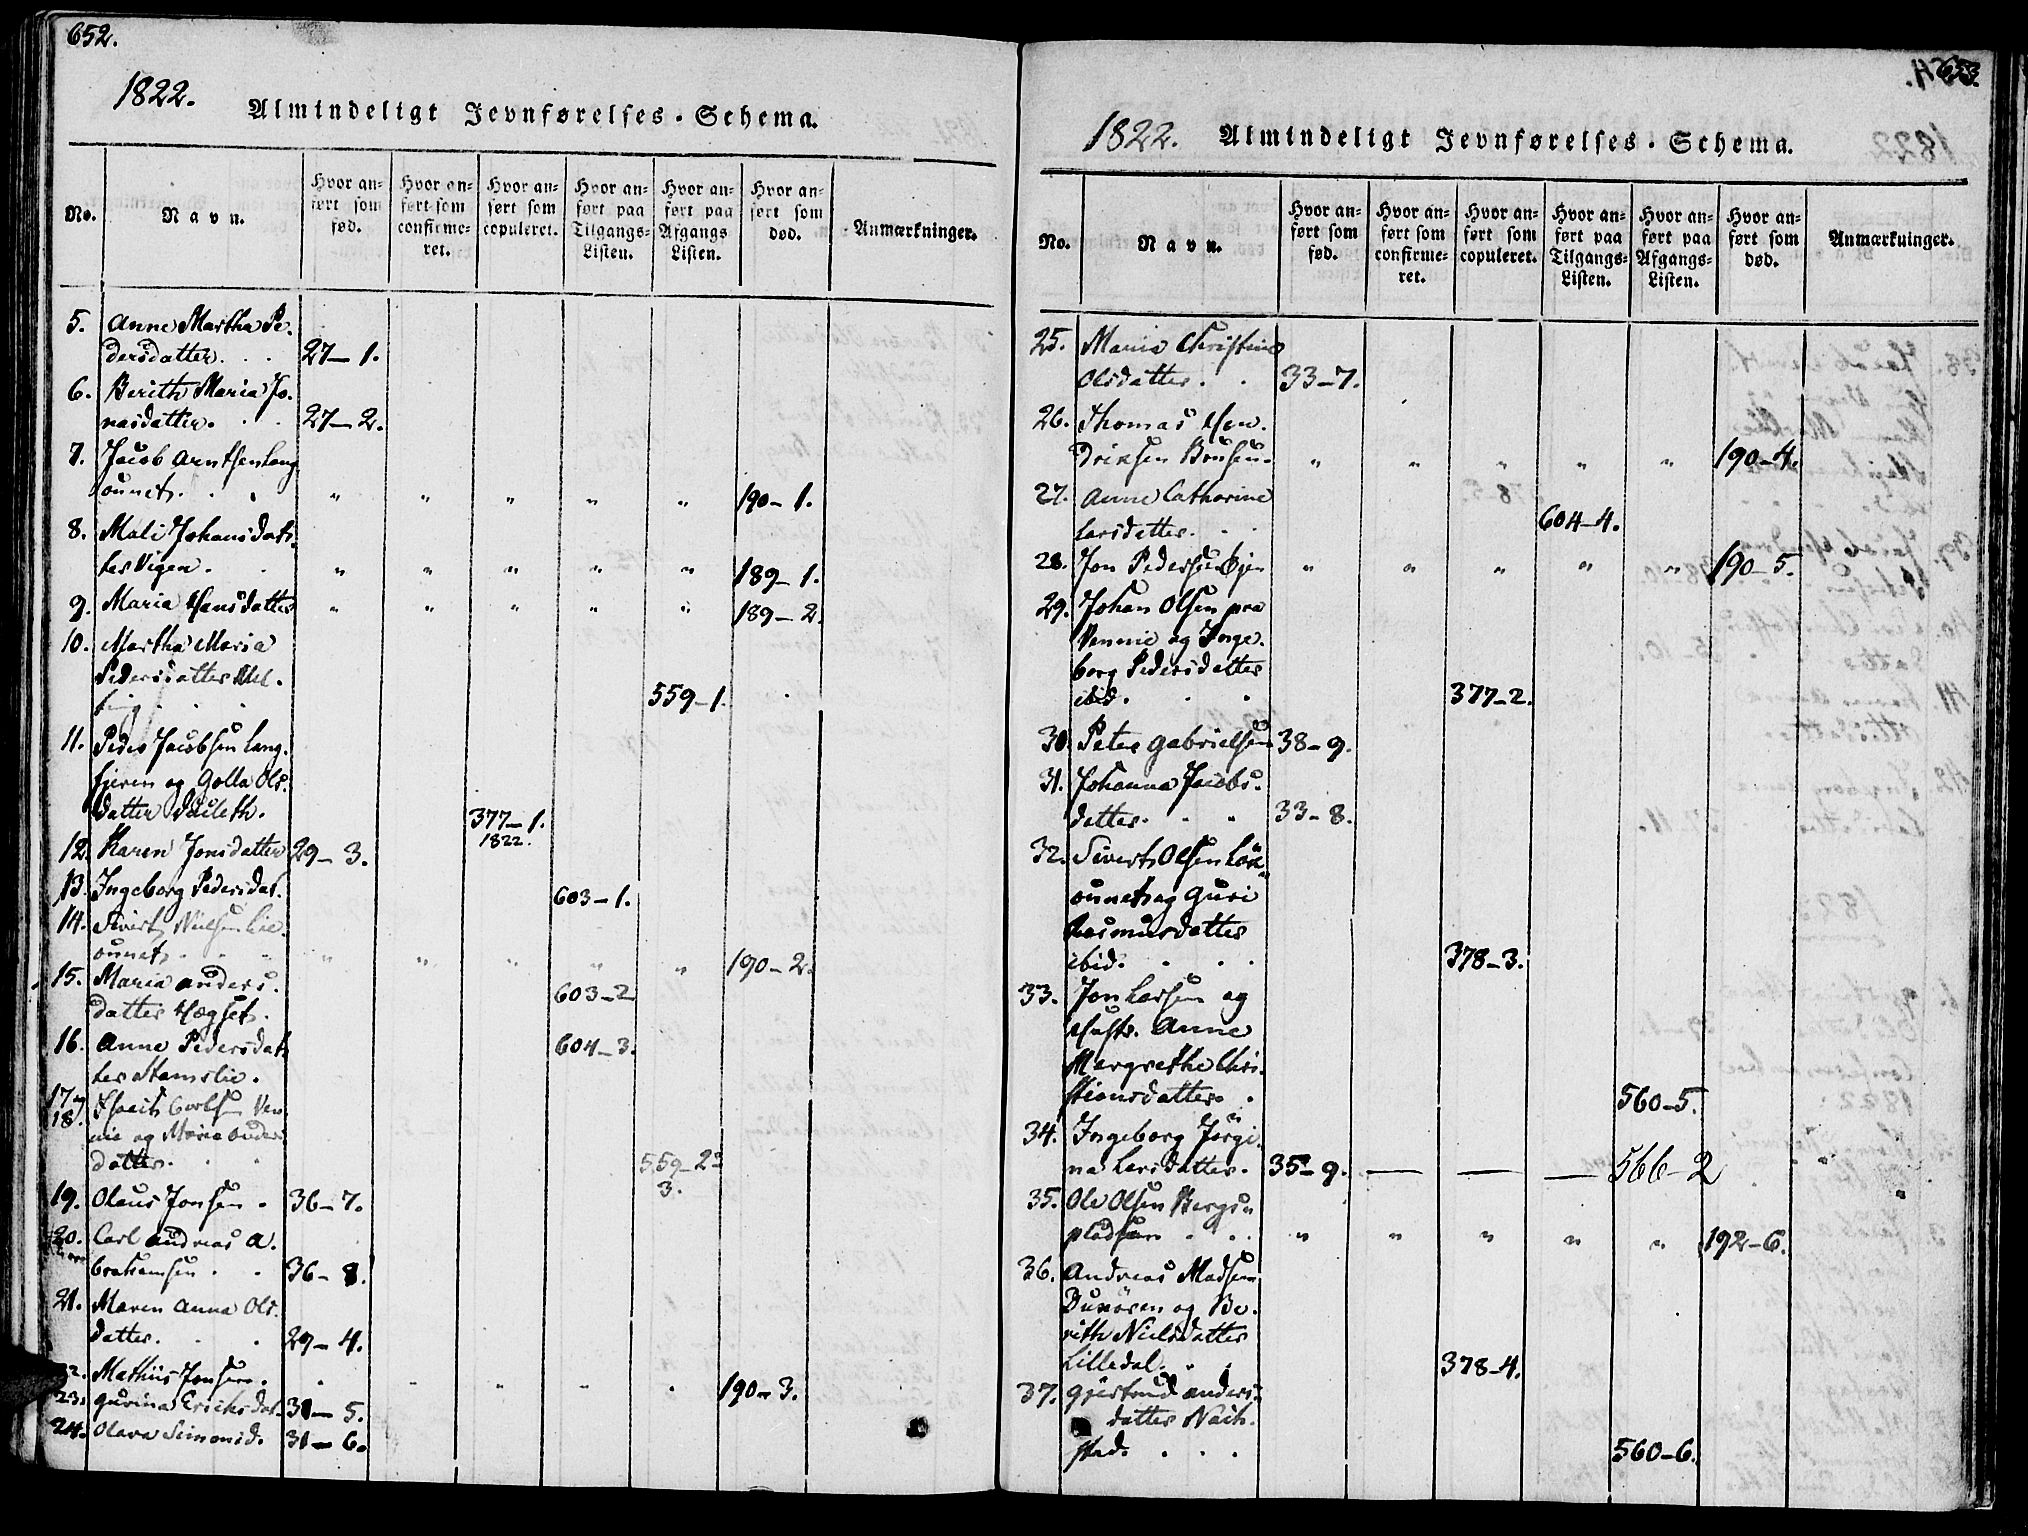 652.
1822. Almindeligt Jevnførelses-Schema.
No.
Navn.
Hvor anført som fød.
Hvor anført som confirmeret.
Hvor anført som copuleret.
Hvor anført paa Tilgangs-Listen.
Hvor anført paa Afgangs Listen.
Hvor anført som død.
Anmærkninger.
5. Anne Martha Pe-
dersdatter. . . 27-1.
6. Berith Maria Jo-
nasdatter. . . 27-2.
7. Jacob Arntsen Lang
ounet. . . " " " " " 190-1.
8. Mali Johansdat-
ter Vigen. . " " " " " 189-1.
9. Maria Hansdatter " " " " " 189-2.
10. Martha Maria
Pedersdatter
559-1.
11. Peder Jacobsen Lang-
fjeren og Golla Ols-
datter
377-1.
1822.
12. Karen Jonsdatter 29-3.
13. Ingeborg Pedersdat. 603-1.
14. Sivert Nielsen Lie-
ounet. . . " " " " " 190-2.
15. Maria Anders-
datter Hægset. 603-2
16. Anne Pedersdat-
ter Stamslie. 604-3.
17-
18. Carlsen Ven-
nie og Maria Anders-
datter. . . 559-2 3.
19. Olaus Jonsen . 36-7.
20. Carl Andreas A-
brahamsen . . 36-8.
21. Maren Anna Ols-
datter. . . 29-4.
22. Mathias Jonsen. . " " " " 190-3.
23. Gurina Erichsdat. 31-5.
24. Olava Simonsd. 31-6.
653.
1822. Almindeligt Jevnførelses-Schema.
No.
Navn.
Hvor anført som fød.
Hvor anført som confirmeret.
Hvor anført som copuleret.
Hvor anført paa Tilgangs-Listen.
Hvor anført paa Afgangs-Listen.
Hvor anført som død.
Anmærkninger.
25. Maria Christine
Olsdatter. . 33-7.
26. Thomas Hen-
driksen " " " " " 190-4.
27. Anne Cathorine
Larsdatter. . . 604-4.
28. Jon Pedersen " " " " " 190-5.
29. Johan Olsen paa
Vennie og Inge-
borg Pedersdatter
ibid. . . 377-2.
30. Peter Gabrielsen 38-9.
31. Johanna Jacobs-
datter. . . 33-8.
32. Sivert Olsen
ounet og Guri
Rasmusdatter
ibid. . . . 378-3.
33. Jon Larsen og
Hustr. Anne
Margrethe Chri-
stiansdatter . 560-5.
34. Ingeborg Jörgi-
na Larsdatter. 35-9. — — — 566-2
35. Ole Olsen Bergs-
pladsen . . . " " " " " 192-6.
36. Andreas Madsen
og Be-
rith Nielsdatter
Lilledal. . . 378-4.
37. Gjertrud Anders-
datter
stad. . . . 560-6.